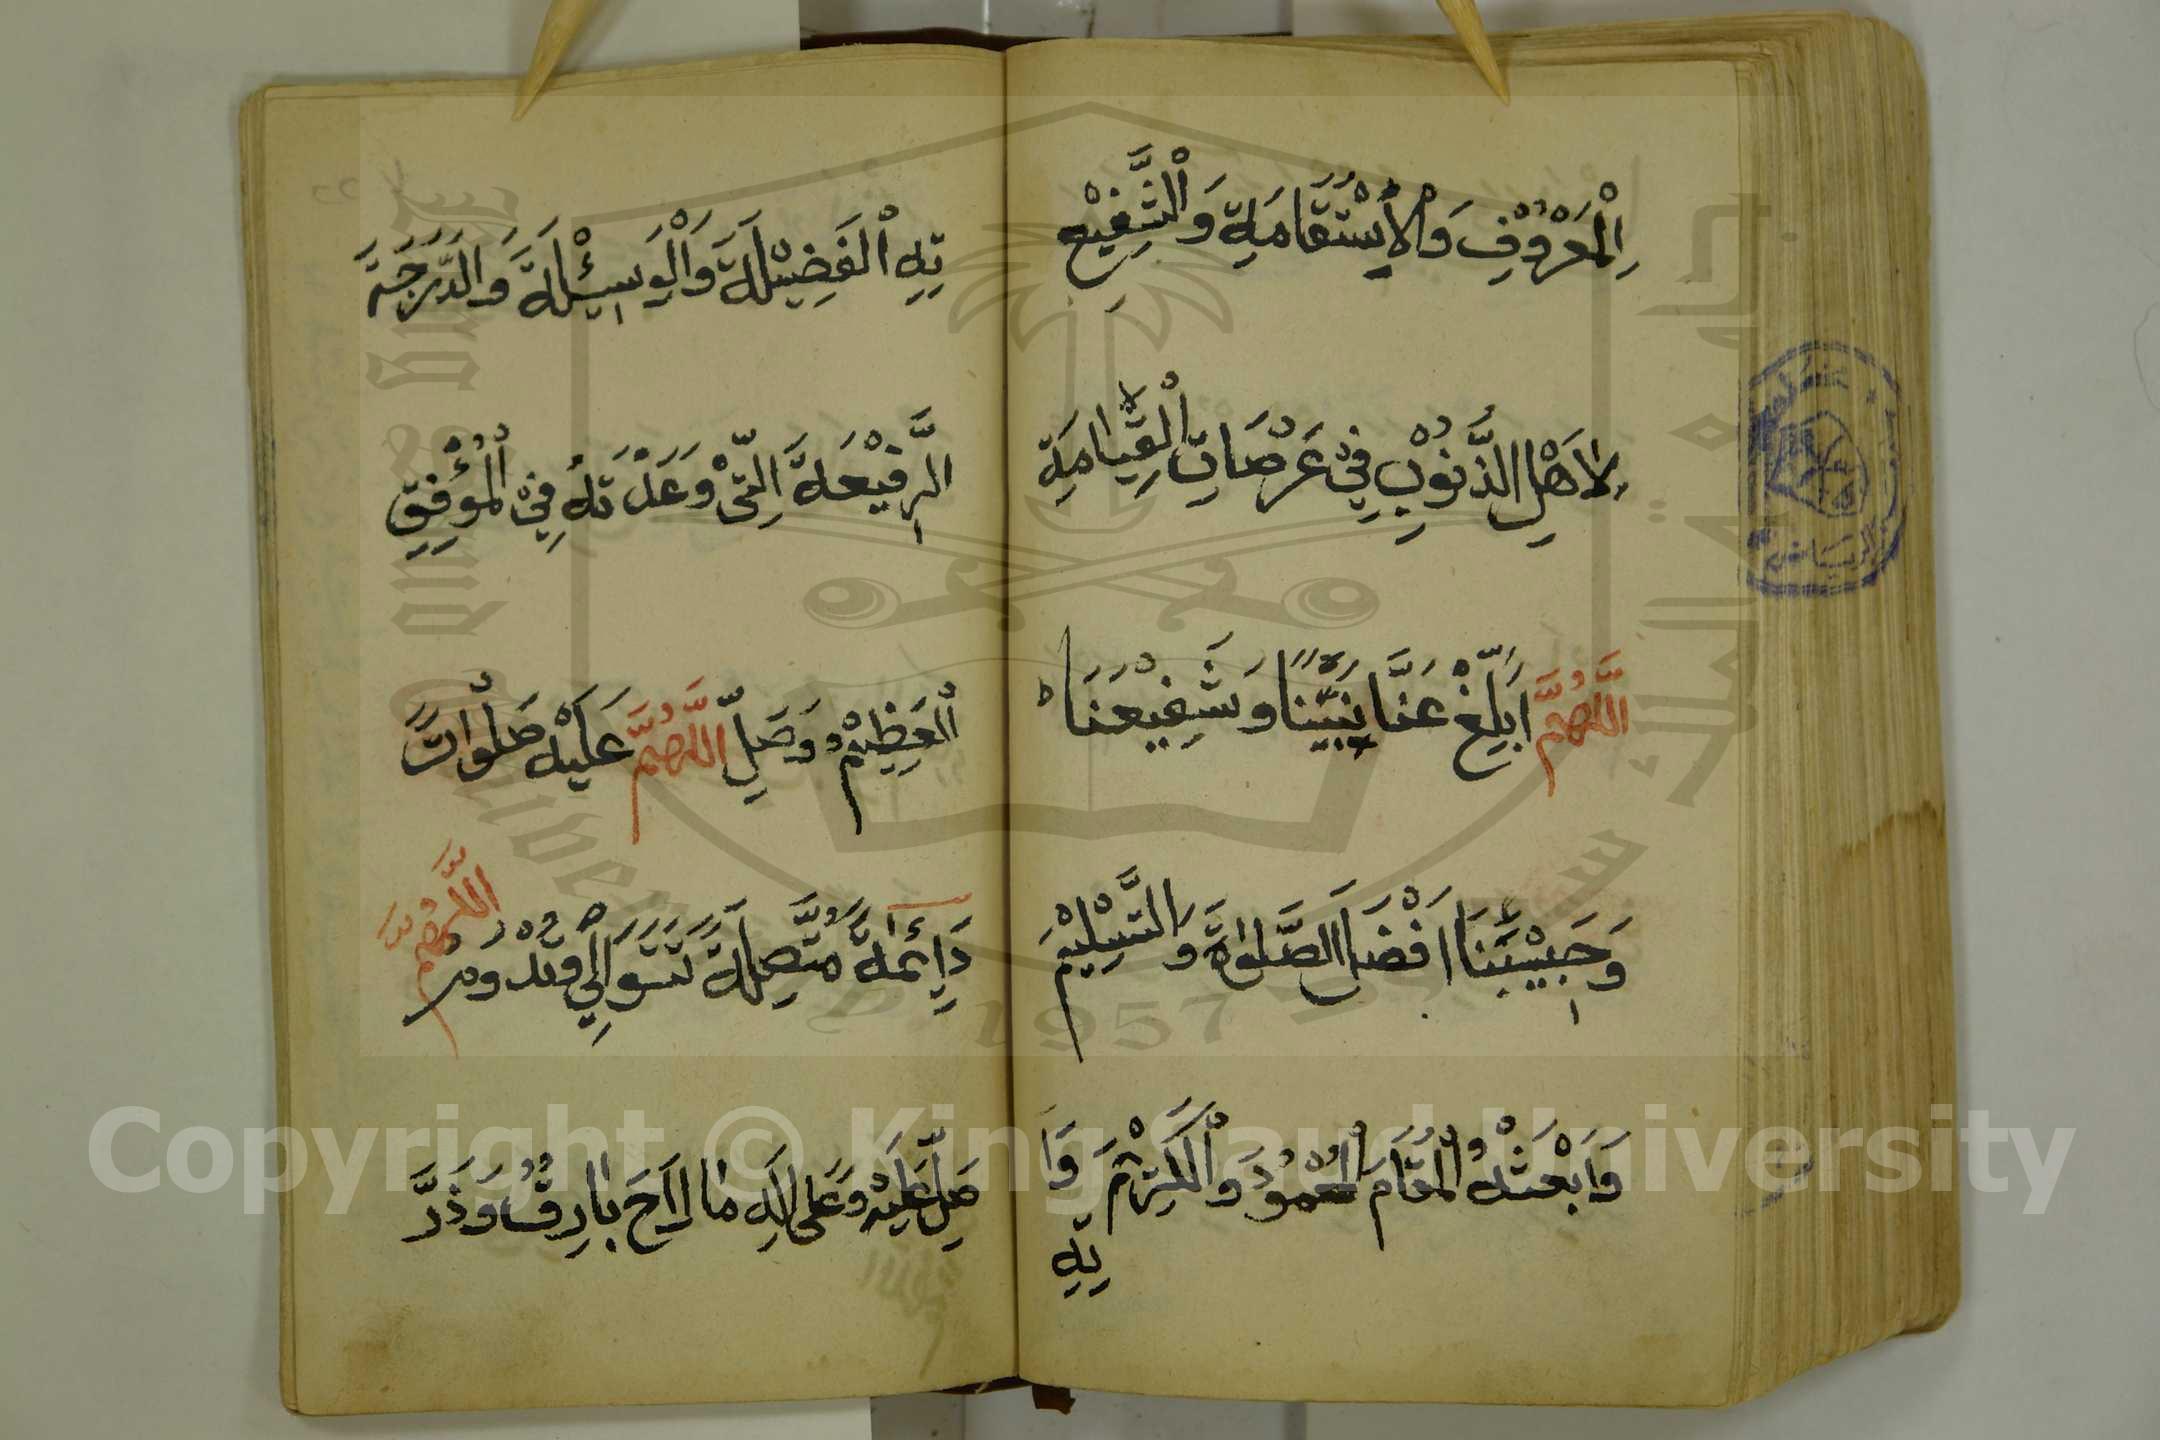 الْمَعْرُوْفِ وَالْاِسْتُقَامَةِ وَالْشَّفِيْعِ
لِاَهْلِ الذُّنُوْبِ فِيْ عَرْصَاتِ الْقِيَامَةِ
اللّٰهُمَّ اَبَلِّغْ عَنَّا نَبِيَّنَا وَشَفِيْعَنَا
وَحَبِيْبَنَا اَفْضَلَ الصَّلٰوةِ وَالتَّسْلِيْمِ
وَابْعَثْهُ الْمُقَامَ الْمَحْمُوْدَ وَالْكَرِيْمَ وَاٰ
تِهِ
تِهِ الْفَضِيْلَةَ وَالْوَسِئْلَةَ وَالدَّرَجَةَ
الرَّفِيْعَةَ الِتّىْ وَعَدْتَهُ فِيْ الْمُؤْفِقِ
الْعَظِيْمِ وَصَلِّ اللّٰهُمَّ عَلَيْهِ صَلْوَاتً
دَائِمَةً مُتَّصِلَةً تَتَوَالٰى وَتَدُوْمُ اللّٰهُمَّ
صَلِّ عَلَيْهِ وَعَلٰى اٰلِهِ مَا لَاحَ بَارِقُ وَذَرَّ
Copyright © King Saud University
1957